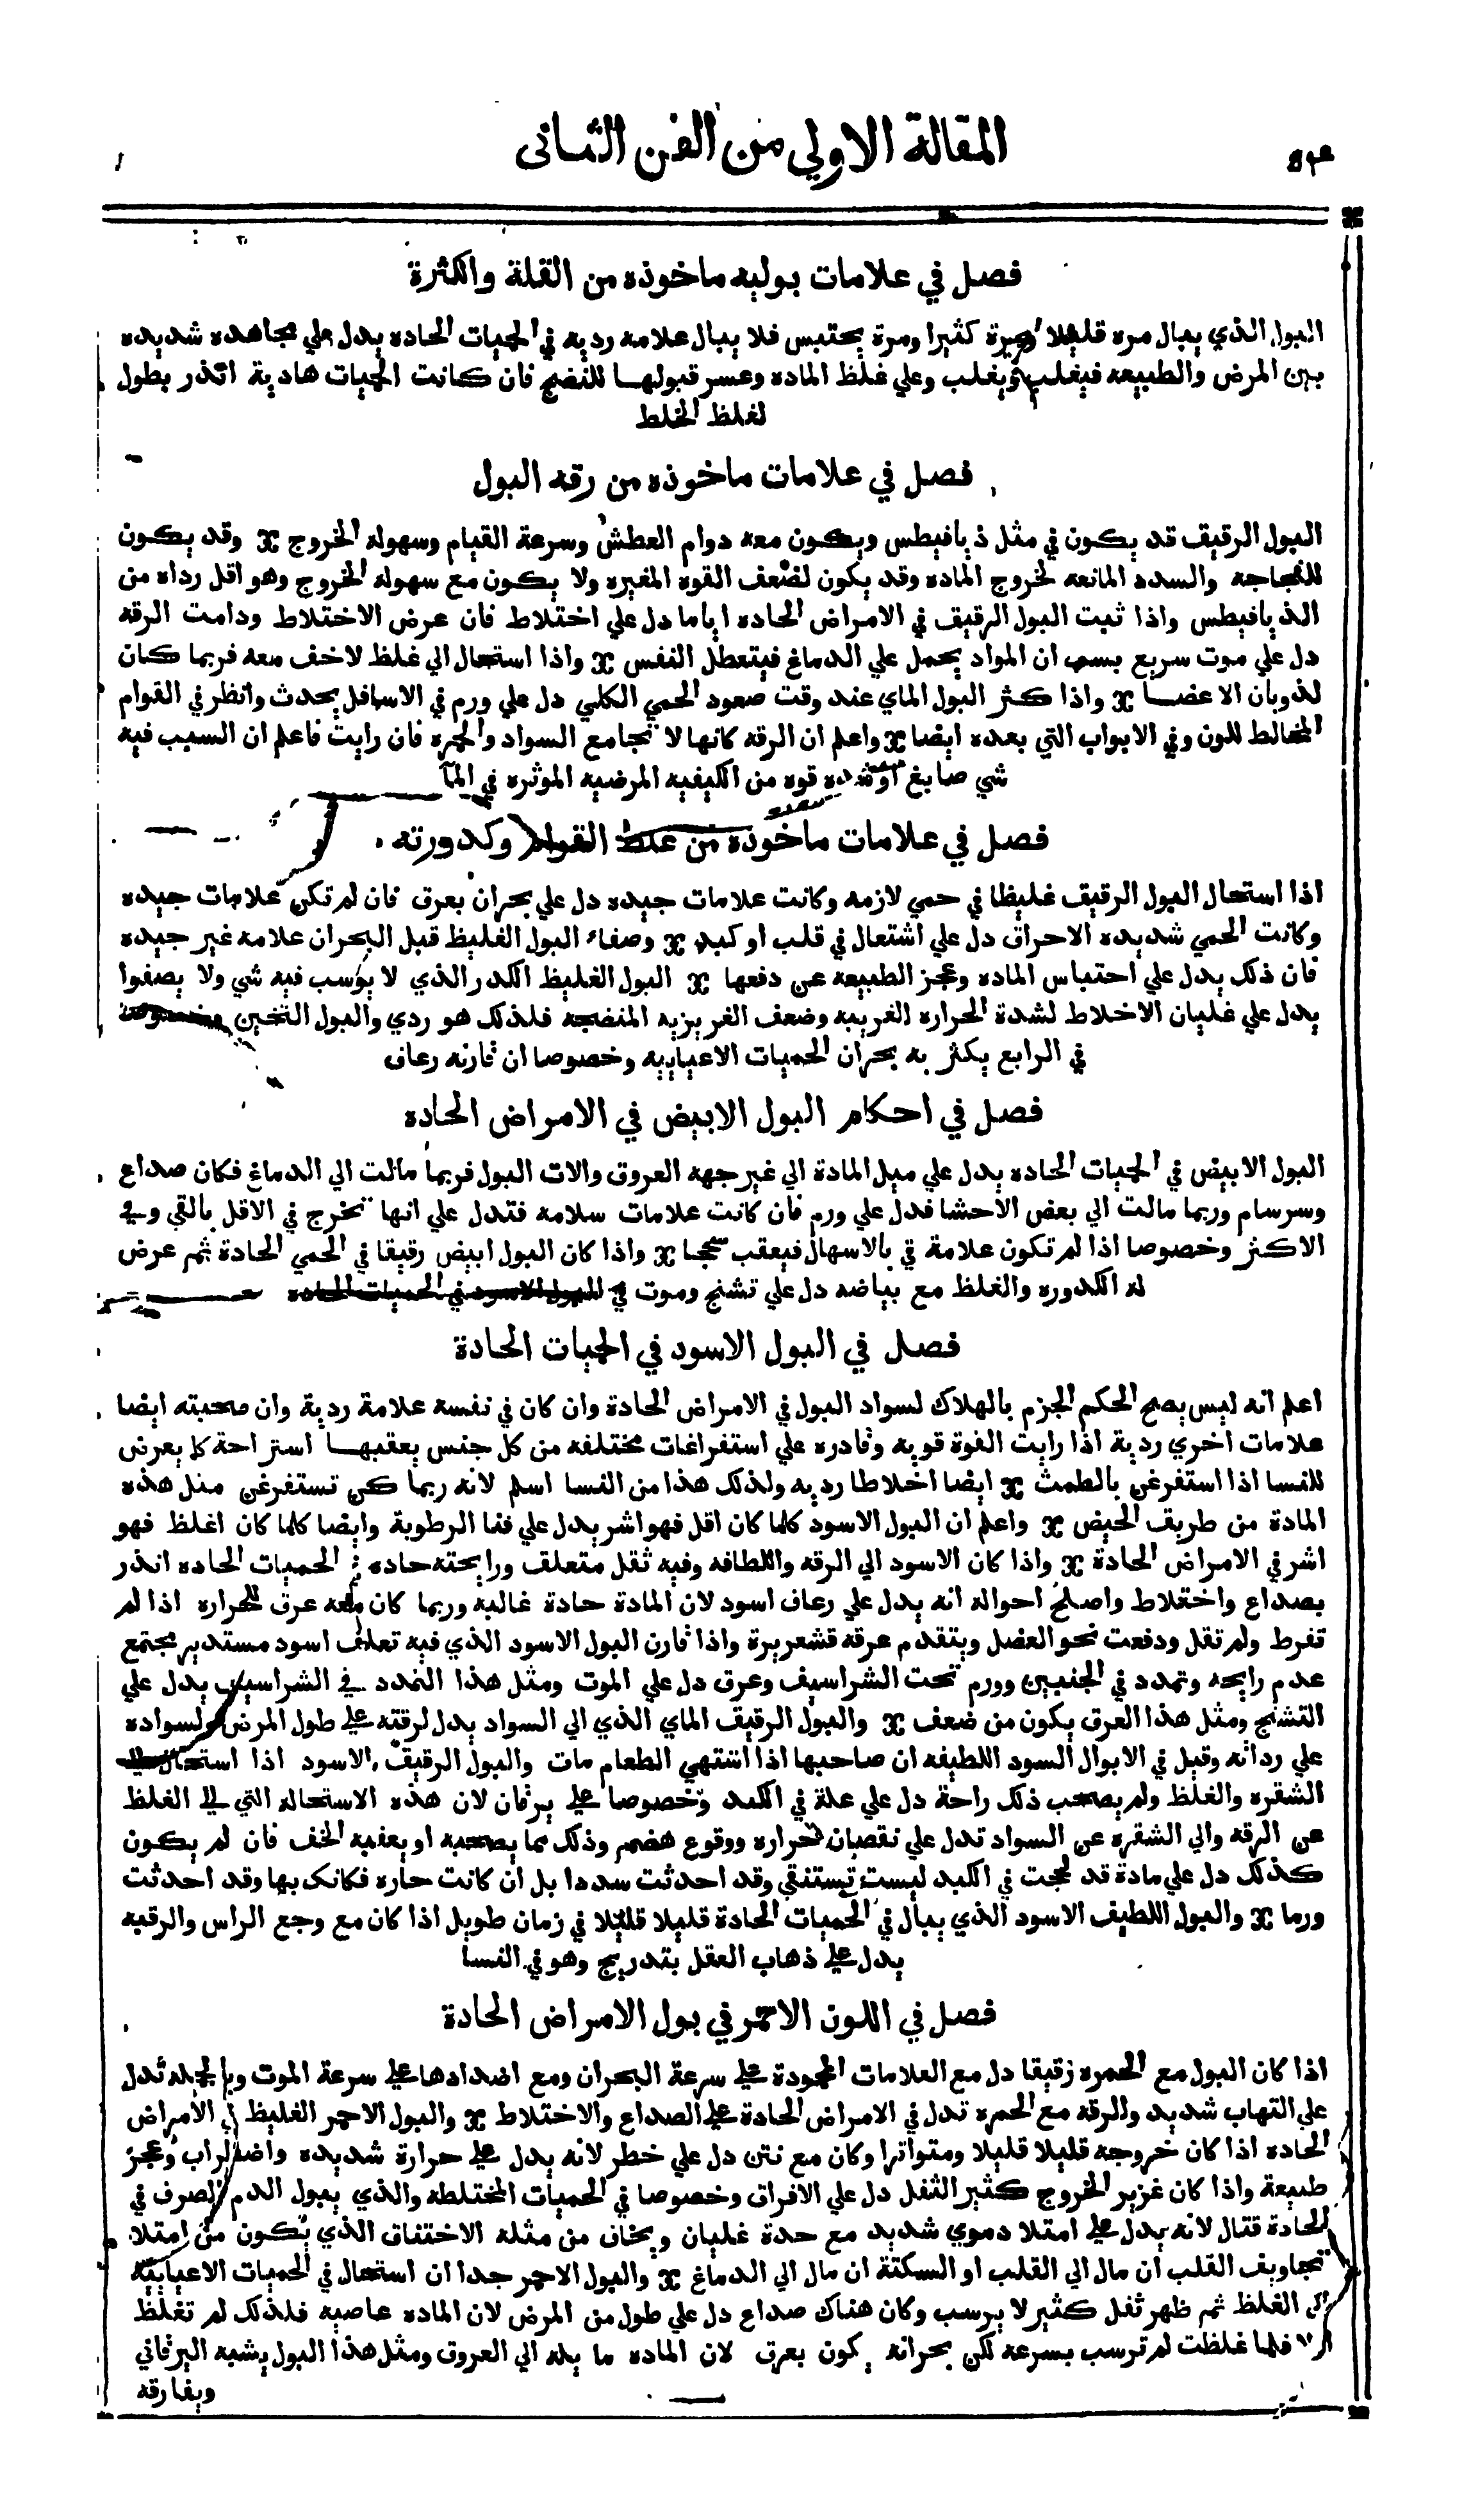 المقالة الاولي من الفن الثانى
فصل في علامات بوليه ماخوذه من القلة والكثرة
البول الذي يبال مره قليلا ومرة كثيرا ومرة يحتبس فلا يبال علامه رديه في الحميات الحاده يدل علي مجاهده شديده
بين المرض والطبيعه فيغلب ويغلب وعلي غلظ الماده وعسر قبولها للنضج فان كانت الحميات هادية انذر بطول
لغلظ الخلط
فصل في علامات ماخوذه من رقه البول
البول الرقيق قد يكون في مثل ذيافيطس ويكون معه دوام العطش وسرعة القيام وسهوله الخروج ※ وقد يكون
للفجاجه والسدد المانعه لخروج الماده وقد يكون لضعف القوه المغيره ولا يكون مع سهوله الخروج وهو اقل رداه من
الذيافيطس واذا ثبت البول الرقيق في الامراض الحاده اياما دل علي اختلاط فان عرض الاختلاط ودامت الرقه
دل علي موت سريع بسبب ان المواد يحمل علي الدماغ فيتعطل النفس ※ واذا استحال الي غلظ لاخف معه فربما كان
لذوبان الاعضا ※ واذا كثر البول الماي عند وقت صعود الحمي الكلي دل علي ورم في الاسافل يحدث وانظر في القوام
المخالط للون وفي الابواب التي بعده ايضا ※ واعلم ان الرقه كانها لا تجامع السواد والحمره فان رايت فاعلم ان السبب فيه
شي صابغ او شده قوه من الكيفيه المرضيه الموثره في المآ
فصل في علامات ماخوذه من غلظ القوام وكدورته
اذا استحال البول الرقيق غليظا في حمي لازمه وكانت علامات جيده دل علي بحران بعرق فان لم تكن علامات جيده
وكانت الحمي شديده الاحراق دل علي اشتعال في قلب او كبد ※ وصفاء البول الغليظ قبل البحران علامه غير جيده
فان ذلك يدل علي احتباس الماده وعجز الطبيعه عن دفعها ※ البول الغليظ الكدر الذي لا يرسب فيه شي ولا يصفوا
يدل علي غليان الاخلاط لشدة الحراره الغريبه وضعف الغريزيه المنضجه فلذلك هو ردي والبول الثخين وخصوصا
في الرابع يكثر به بحران الحميات الاعياييه وخصوصا ان قارنه رعاف
فصل في احكام البول الابيض في الامراض الحاده
البول الابيض في الحميات الحاده يدل علي ميل المادة الي غير جهه العروق والات البول فربما مالت الي الدماغ فكان صداع
وسرسام وربما مالت الي بعض الاحشا فدل علي ورم فان كانت علامات سلامه فتدل علي انها تخرج في الاقل بالقي وفي
الاكثر وخصوصا اذا لم تكون علامة قي بالاسهال فيعقب سحجا ※ واذا كان البول ابيض رقيقا في الحمي الحادة ثم عرض
له الكدوره والغلظ مع بياضه دل علي تشنج وموت في البول الاسود في الحميات الحاده
فصل في البول الاسود في الحميات الحادة
اعلم انه ليس يصح الحكم الجزم بالهلاك لسواد البول في الامراض الحادة وان كان في نفسه علامة ردية وان صحبته ايضا
علامات اخري ردية اذا رايت القوة قويه وقادره علي استفراغات مختلفه من كل جنس يعقبها استراحة كما يعرض
للنسا اذا استفرغن بالطمث ※ ايضا اخلاطا رديه ولذلك هذا من النسا اسلم لانه ربما كن تستفرغن مثل هذه
المادة من طريق الحيض ※ واعلم ان البول الاسود كلما كان اقل فهو اشر يدل علي فنا الرطوبة وايضا كلما كان اغلظ فهو
اشر في الامراض الحادة ※ واذا كان الاسود الي الرقه واللطافه وفيه ثقل متعلق ورايحته حاده في الحميات الحاده انذر
بصداع واختلاط واصلح احواله انه يدل علي رعاف اسود لان المادة حادة غالبه وربما كان معه عرق للحراره اذا لم
تفرط ولم تقل ودفعت نحو العضل ويتقدم عرقه قشعريرة واذا قارن البول الاسود الذي فيه تعلق اسود مستدير مجتمع
عدم رايحه وتمدد في الجنبين وورم تحت الشراسيف وعرق دل علي الموت ومثل هذا التمدد في الشراسيف يدل علي
التشنج ومثل هذا العرق يكون من ضعف ※ والبول الرقيق الماي الذي الي السواد يدل لرقته علي طول المرض ولسواده
علي ردائه وقيل في الابوال السود اللطيفه ان صاحبها اذا اشتهي الطعام مات والبول الرقيق الاسود اذا استحال الي
الشقره والغلظ ولم يصحب ذلك راحة دل علي علة في الكبد وخصوصا علي يرقان لان هذه الاستحاله التي الي الغلظ
عن الرقه والي الشقره عن السواد تدل علي نقصان حراره ووقوع هضم وذلك مما يصحبه او يعقبه الخف فان لم يكون
كذلك دل علي مادة قد لحجت في الكبد ليست تستنقي وقد احدثت سددا بل ان كانت حاره فكانك بها وقد احدثت
ورما ※ والبول اللطيف الاسود الذي يبال في الحميات الحادة قليلا قليلا في زمان طويل اذا كان مع وجع الراس والرقبه
يدل علي ذهاب العقل بتدريج وهو في النسا
فصل في اللون الاحمر في بول الامراض الحادة
اذا كان البول مع الحمره رقيقا دل مع العلامات المحمودة علي سرعة البحران ومع اضدادها علي سرعة الموت وبالجمله تدل
علي التهاب شديد والرقه مع الحمره تدل في الامراض الحادة علي الصداع والاختلاط ※ والبول الاحمر الغليظ في الامراض
الحاده اذا كان خروجه قليلا قليلا ومتواترا وكان مع نتن دل علي خطر لانه يدل علي حرارة شديده واضطراب وعجز
طبيعة واذا كان غزير الخروج كثير الثفل دل علي الافراق وخصوصا في الحميات المختلطه والذي يبول الدم الصرف في
الحادة قتال لانه يدل علي امتلا دموي شديد مع حدة غليان ويخاف من مثله الاختناق الذي يكون من امتلا
تجاويف القلب ان مال الي القلب او السكتة ان مال الي الدماغ ※ والبول الاحمر جدا ان استحال في الحميات الاعياييه
الي الغلظ ثم ظهر ثفل كثير لا يرسب وكان هناك صداع دل علي طول من المرض لان الماده عاصيه فلذلك لم تغلظ
فلما غلظت لم ترسب بسرعه لكن بحرانه يكون بعرق لان الماده مايله الي العروق ومثل هذا البول يشبه اليرقاني
ويفارقه